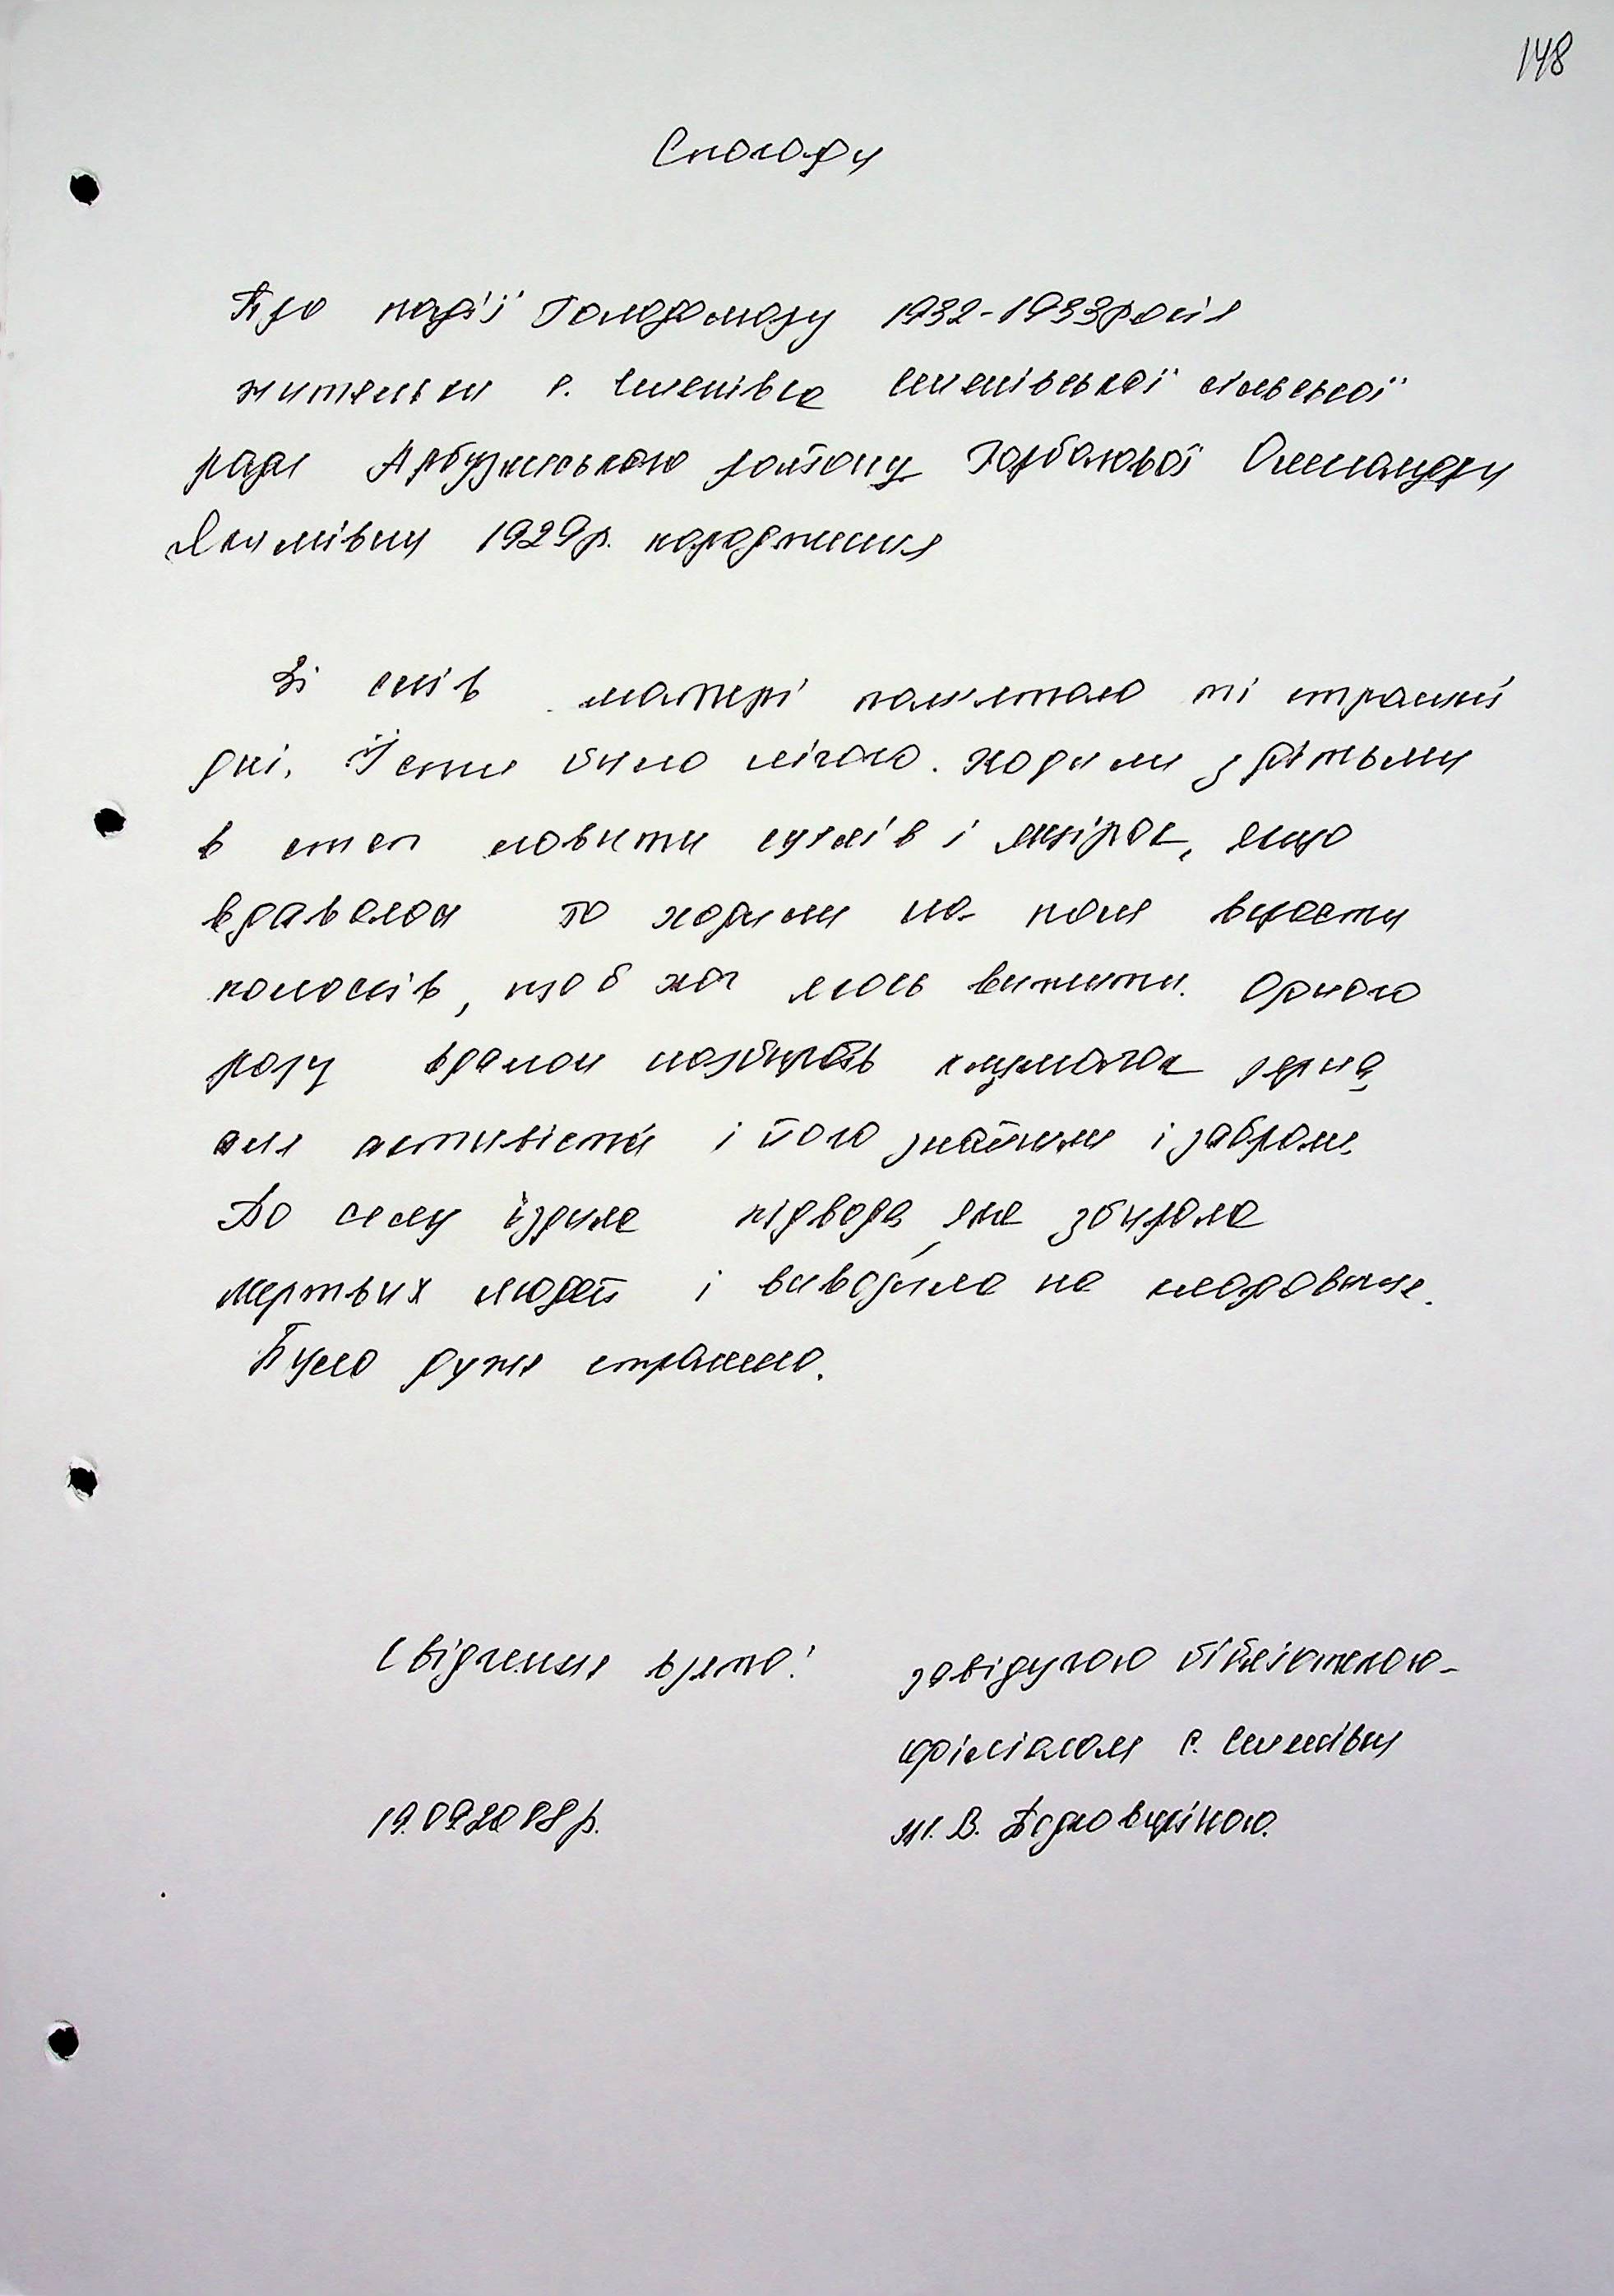 148
Спогади
Про події Голодомору 1932-1933 років
жительки с. Семенівка Семенівської сільської
ради Арбузинського району Горбатової Олександри
Якимівни 1929 р. народження
Зі слів матері пам'ятаю ті страшні
дні. Їсти було нічого. Ходили з дітьми
в степ ловити сусліів і ящірок, якщо
вдавалося то ходили на поле вкрасти
колосків, щоб хоч якось вижити. Одного
разу вдалося назбирать клумачок зерна,
але активісти і його знайшли і забрали.
По селу їздила підвода, яка збирала
мертвих людей і вивозила на кладовище.
Було дуже страшно.
Свідчення взято: завідуючою бібліотекою-
філіалом с. Семенівки
19.09.2008 р.